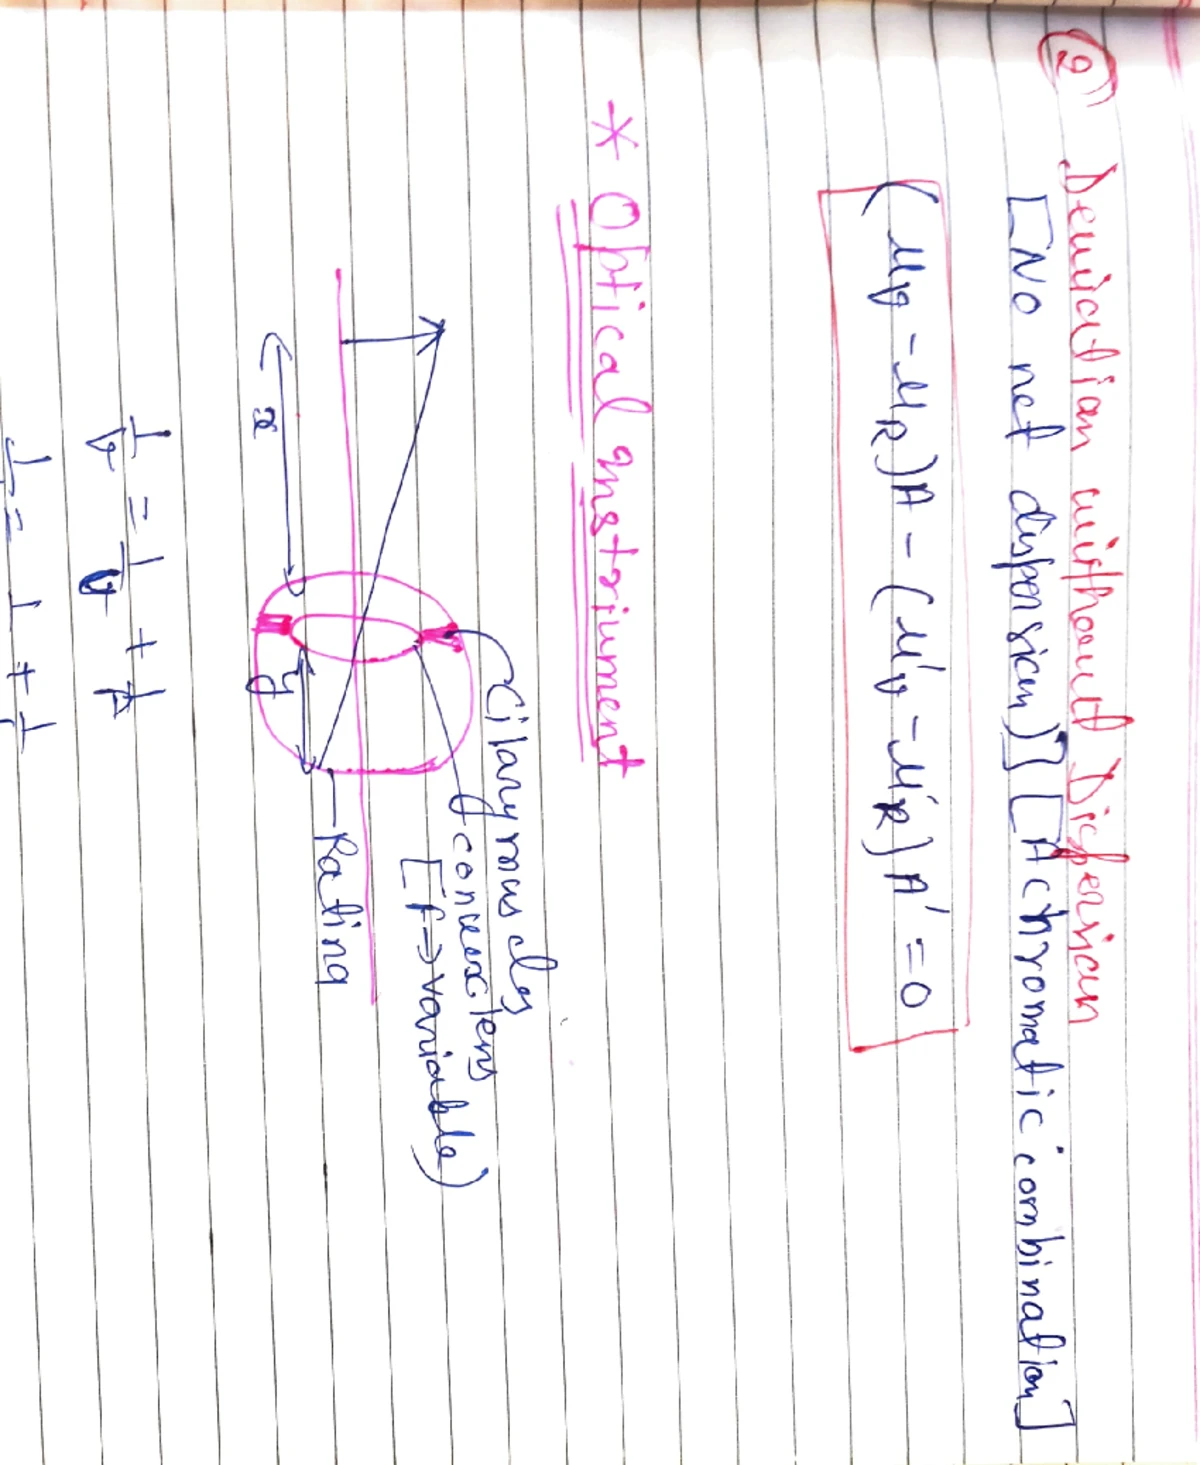 ② Deviation without Dispersion
[No net dispersion)] [Achromatic combination]
(μv - μR)A - (μ'v - μ'R)A' = 0
* Optical Instrument
Cilary muscles
convex lens
[f → variable)
Rating
x
y
1/f = 1/v + 1/